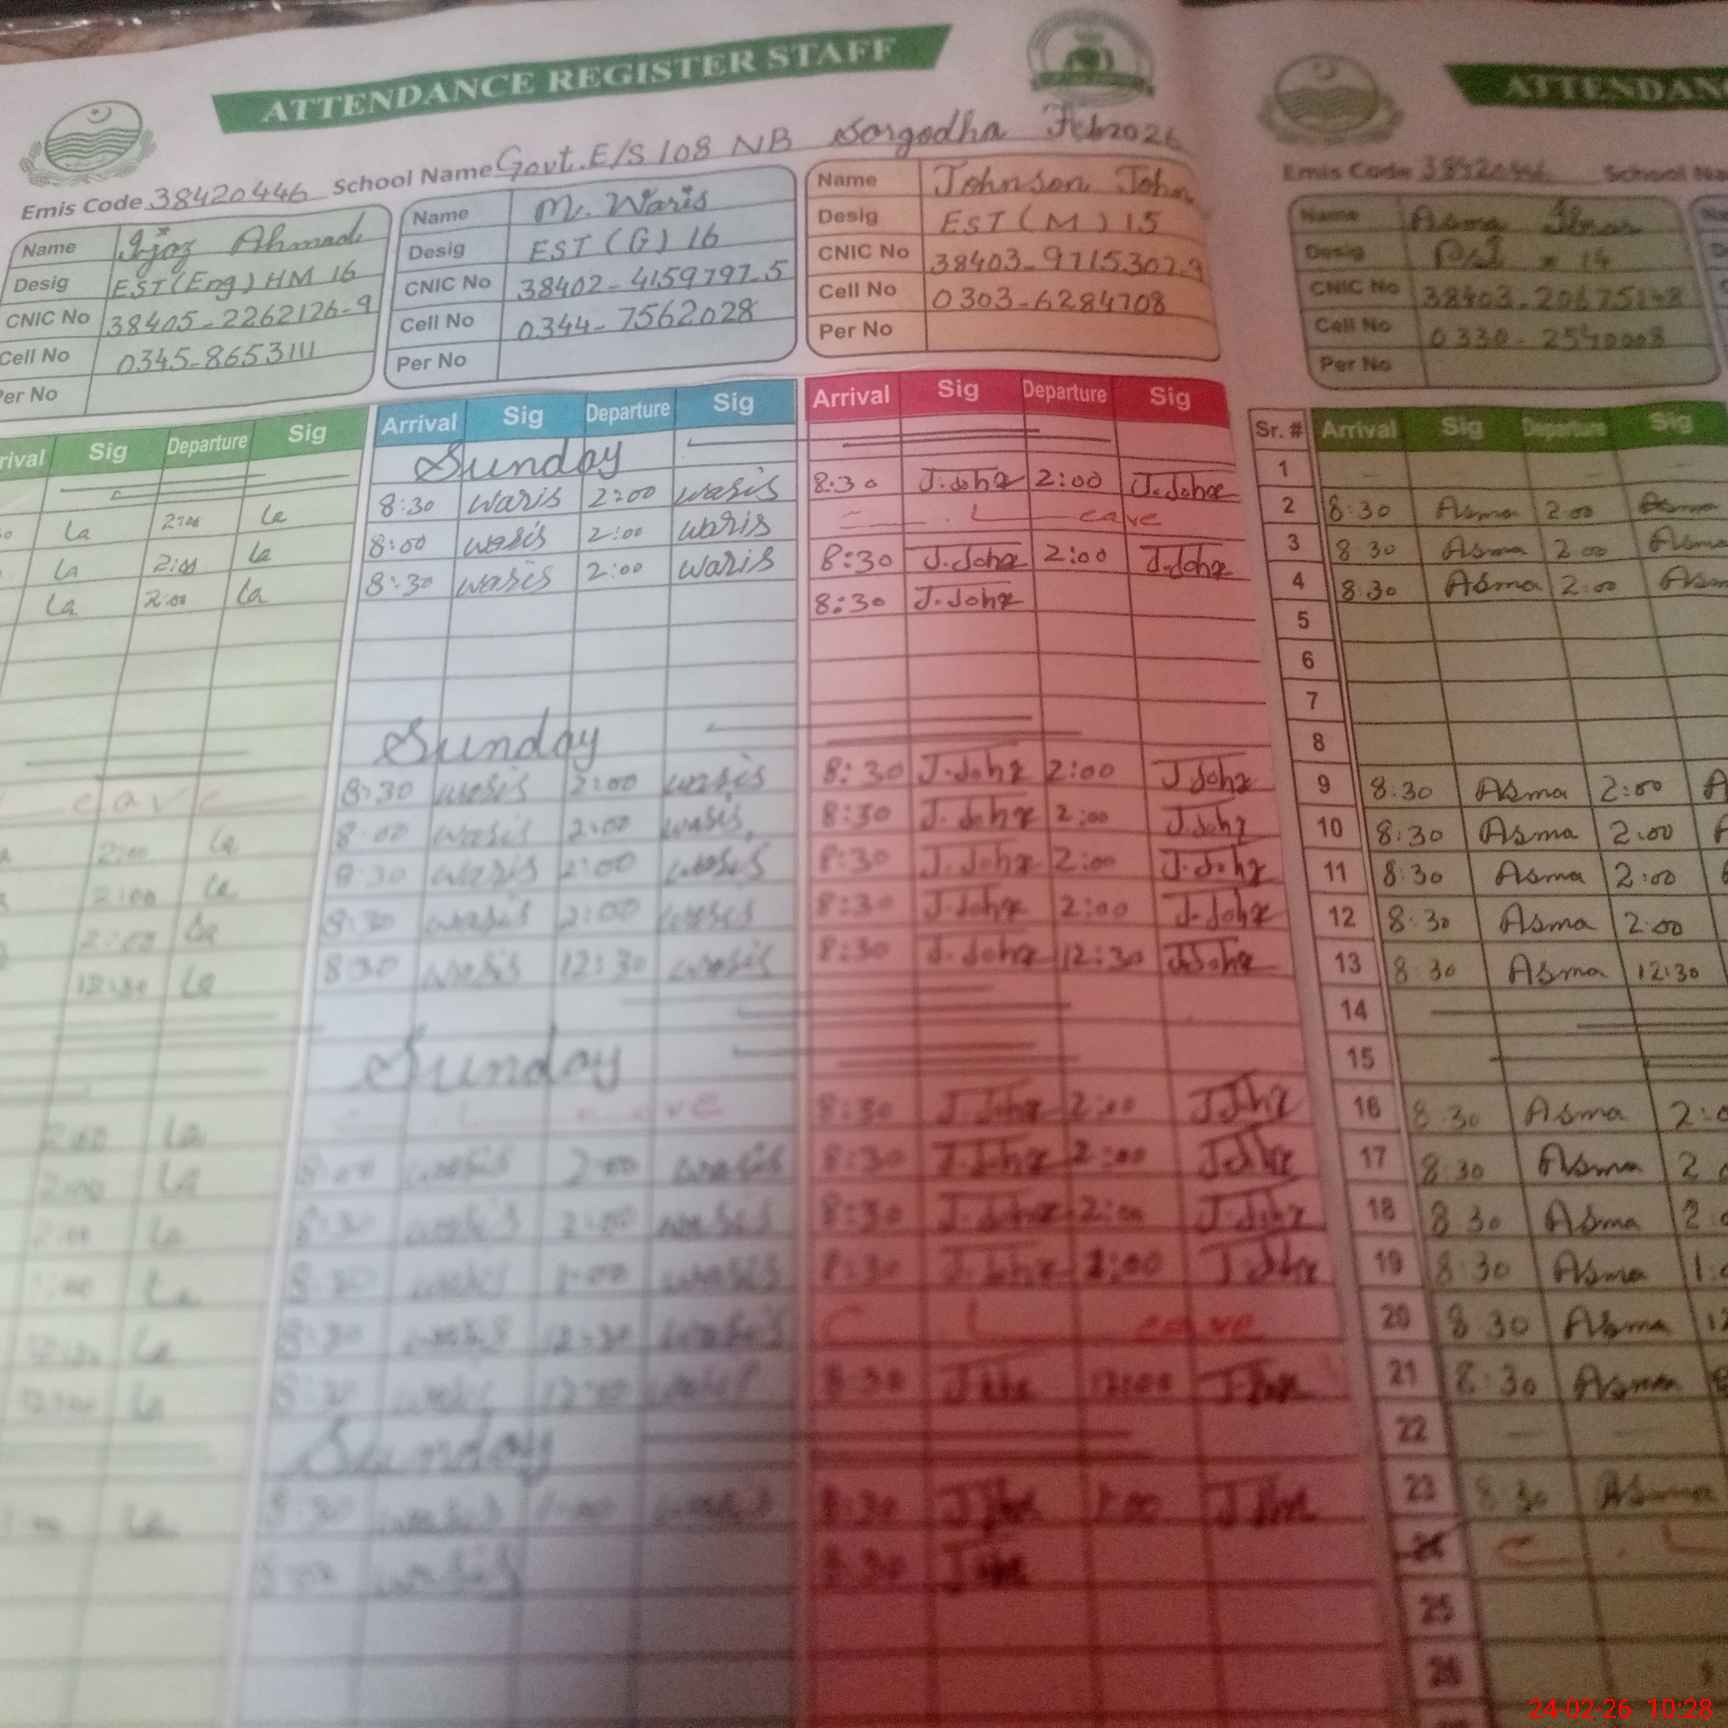 ATTENDANCE REGISTER STAFF
Emis Code 38420446 School Name Govt. E/S 108 NB Sargodha Feb 2026
Name Ijaz Ahmad
Desig EST (Eng) HM 16
CNIC No 38405-2262126-9
Cell No 0345-8653111
Per No
Name M. Waris
Desig EST (G) 16
CNIC No 38402-4159797-5
Cell No 0344-7562028
Per No
Name Johnson John
Desig EST (M) 15
CNIC No 38403-9715307-9
Cell No 0303-6284708
Per No
Sig Departure Sig
La 2:00 La
La 2:00 La
La 2:00 La
2:00 La
2:00 La
2:00 La
12:30 La
2:00 La
2:00 La
2:00 La
La
12:30 La
La
La
Arrival Sig Departure Sig
Sunday
8:30 Waris 2:00 Waris
8:00 Waris 2:00 Waris
8:30 Waris 2:00 Waris
Sunday
8:30 Waris 2:00 Waris
8:00 Waris 2:00 Waris
8:30 Waris 2:00 Waris
8:30 Waris 2:00 Waris
8:30 Waris 12:30 Waris
Sunday
Leave
8:00 Waris 2:00 Waris
8:30 Waris 2:00 Waris
8:30 Waris Waris
8:30 Waris 12:30 Waris
8:30 Waris Waris
Sunday
8:30 Waris Waris
8:00 Waris
Arrival Sig Departure Sig
8:30 J.John 2:00 J.John
C. Leave
8:30 J.John 2:00 J.John
8:30 J.John
8:30 J.John 2:00 J.John
8:30 J.John 2:00 J.John
8:30 J.John 2:00 J.John
8:30 J.John 2:00 J.John
8:30 J.John 12:30 J.John
8:30 J.John 2:00 J.John
8:30 J.John 2:00 J.John
8:30 J.John 2:00 J.John
8:30 J.John J.John
C Leave
8:30 John 12:00 J.John
8:30 John 1:00 John
8:30 John
ATTENDAN
Emis Code 38420446 School Na
Name Asma
Desig
CNIC No
Cell No
Per No
Sr. # Arrival Sig Departure Sig
1
2 8:30 Asma 2:00 Asma
3 8:30 Asma 2:00 Asma
4 8:30 Asma 2:00 Asm
5
6
7
8
9 8:30 Asma 2:00 A
10 8:30 Asma 2:00 A
11 8:30 Asma 2:00
12 8:30 Asma 2:00
13 8:30 Asma 12:30
14
15
16 8:30 Asma 2:0
17 8:30 Asma 2
18 8:30 Asma 2
19 8:30 Asma 1:
20 8:30 Asma 12
21 8:30 Asma
22
23 8:30 Asma
24 C. L
25
26
24-02-26 10:28